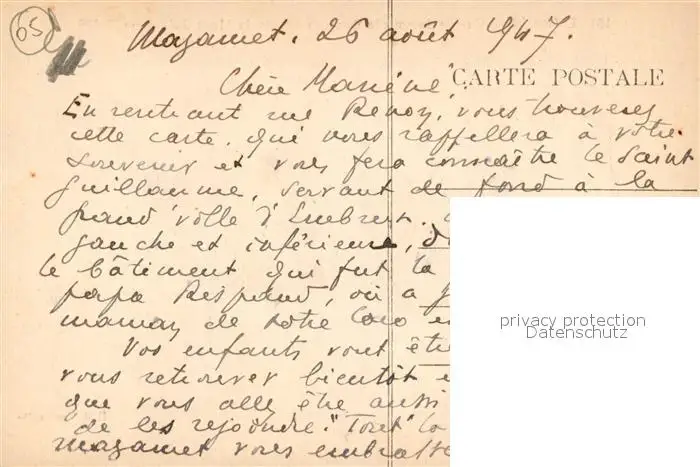 65
Mazamet. 26 août 1947.
Chère
CARTE POSTALE
En rentrant rue vous trouverez
cette carte, qui vous rappellera à votre
souvenir et vous fera connaître le Saint
Guillaume, servant de fond à la
gauche et inférieure,
le bâtiment qui fut la
papa où a
maman de votre
Vos enfants vont
vous retrouver bientôt
que vous allez être aussi
de les rejoindre. "Tout"
Mazamet vous
privacy protection
Datenschutz